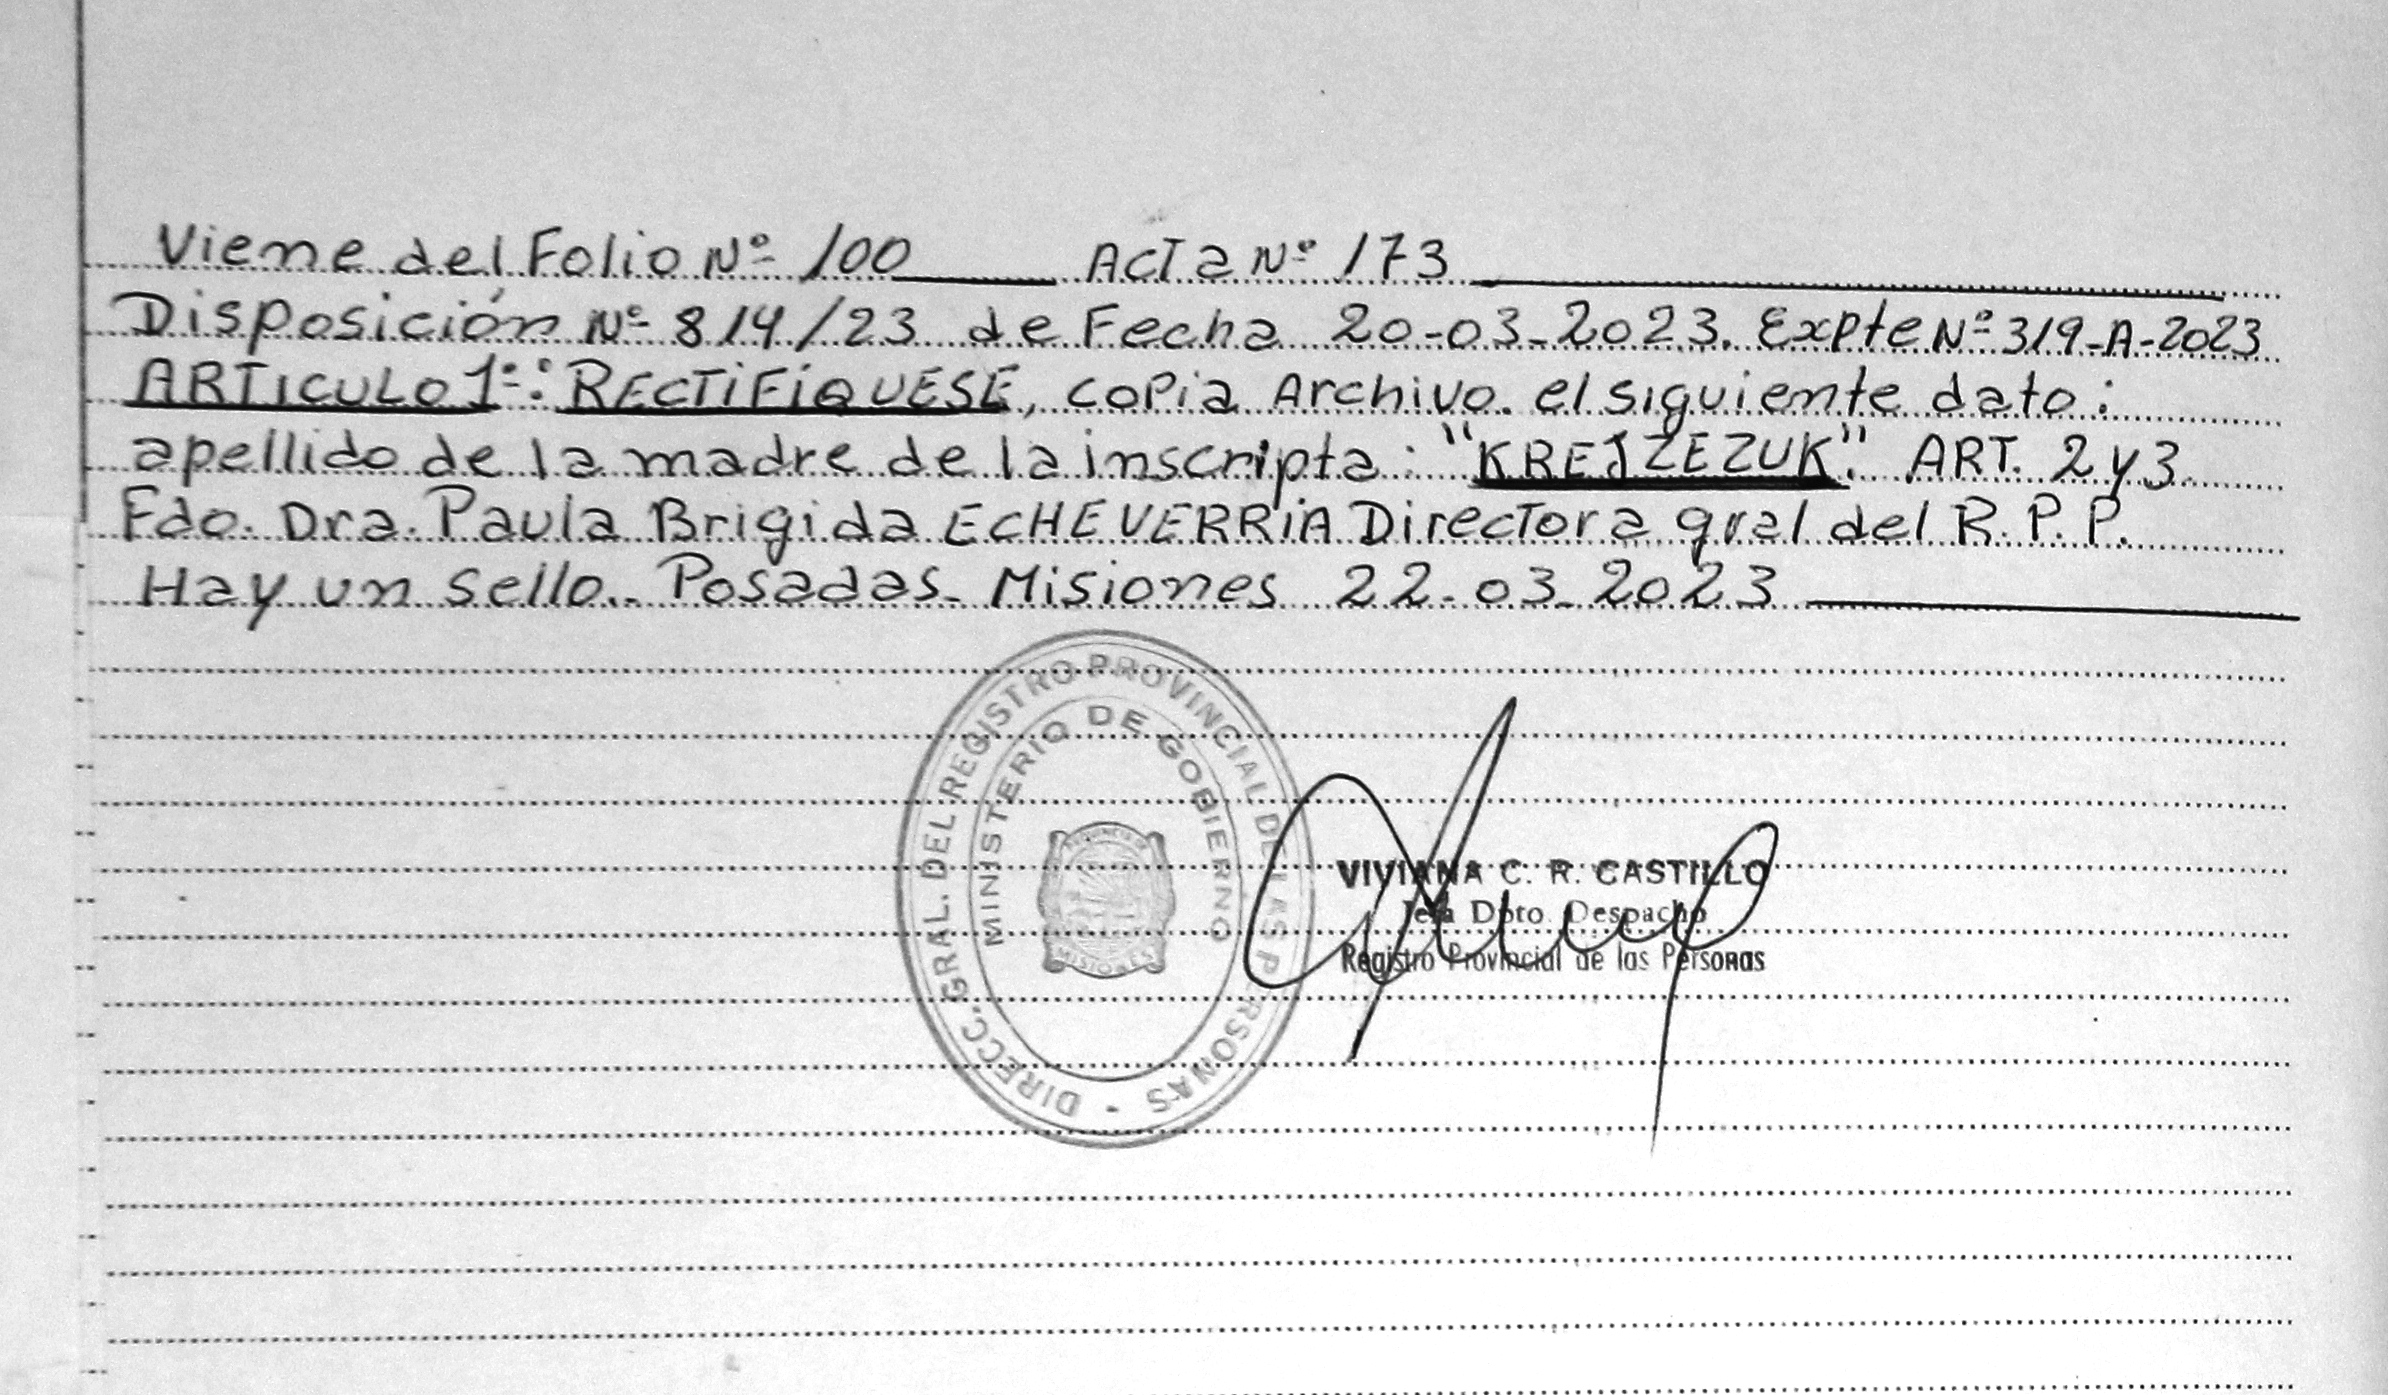 Viene del Folio Nº 100 Acta Nº 173
Disposición Nº 814/23 de Fecha 20-03-2023. Expte Nº 319-A-2023
ARTICULO 1º: RECTIFIQUESE, copia Archivo. el siguiente dato:
apellido de la madre de la inscripta: "KREJZEZUK". ART. 2 y 3.
Fdo. Dra. Paula Brigida ECHEVERRIA Directora gral del R.P.P.
Hay un sello.. Posadas- Misiones 22-03-2023
DIRECC. GRAL. DEL REGISTRO PROVINCIAL DE LAS PERSONAS -
MINISTERIO DE GOBIERNO
PROVINCIA DE
MISIONES
VIVIANA C. R. CASTILLO
Jefa Dpto. Despacho
Registro Provincial de las Personas